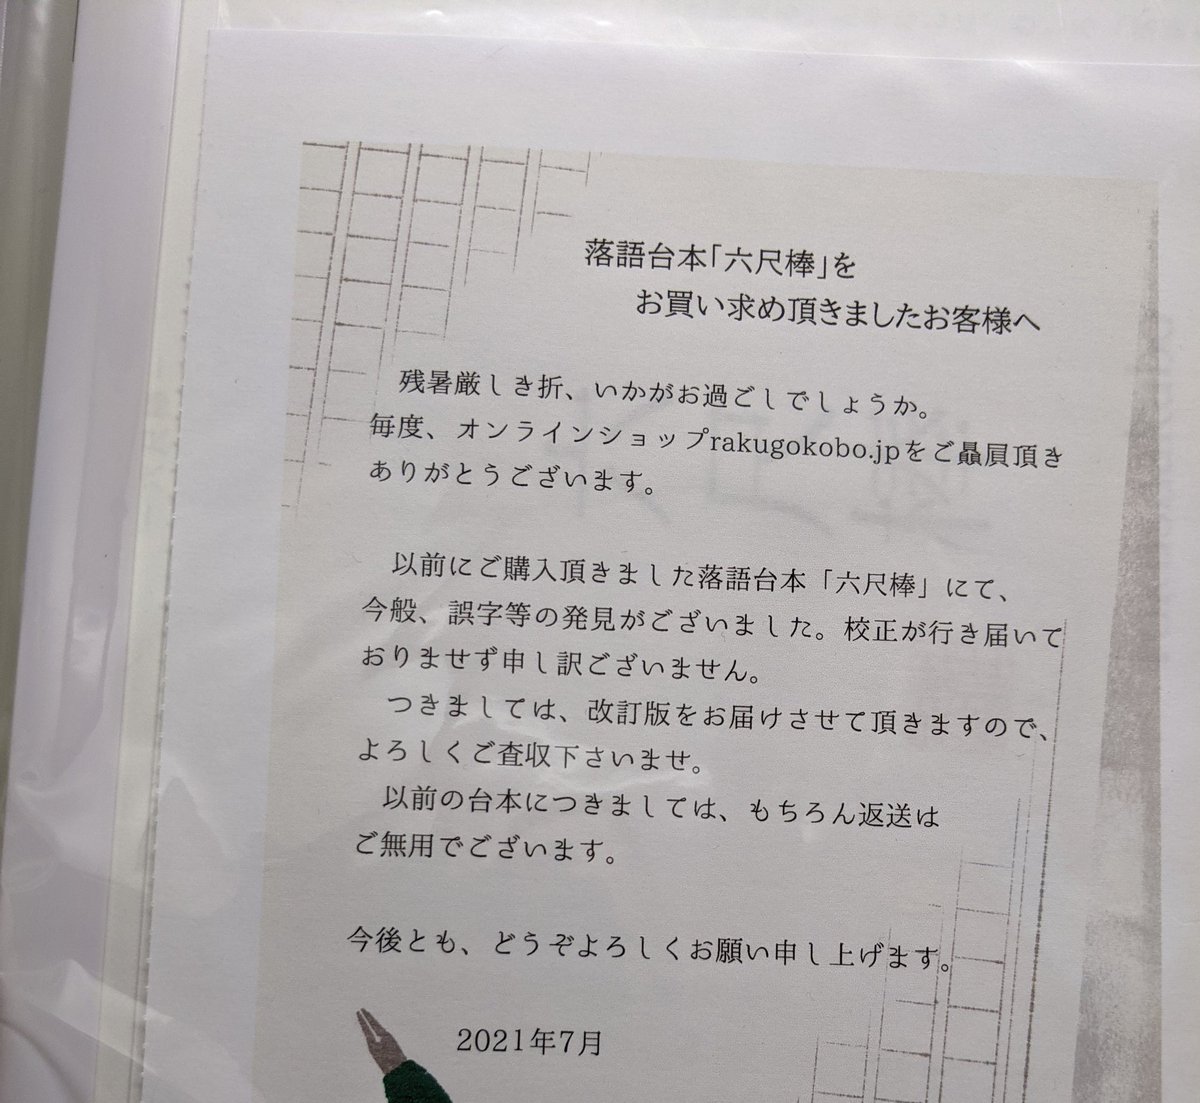 落語台本「六尺棒」を
お買い求め頂きましたお客様へ
残暑厳しき折、いかがお過ごしでしょうか。
毎度、オンラインショップrakugokobo.jpをご贔屓頂き
ありがとうございます。
以前にご購入頂きました落語台本「六尺棒」にて、
今般、誤字等の発見がございました。校正が行き届いて
おりませず申し訳ございません。
つきましては、改訂版をお届けさせて頂きますので、
よろしくご査収下さいませ。
以前の台本につきましては、もちろん返送は
ご無用でございます。
今後とも、どうぞよろしくお願い申し上げます。
2021年7月